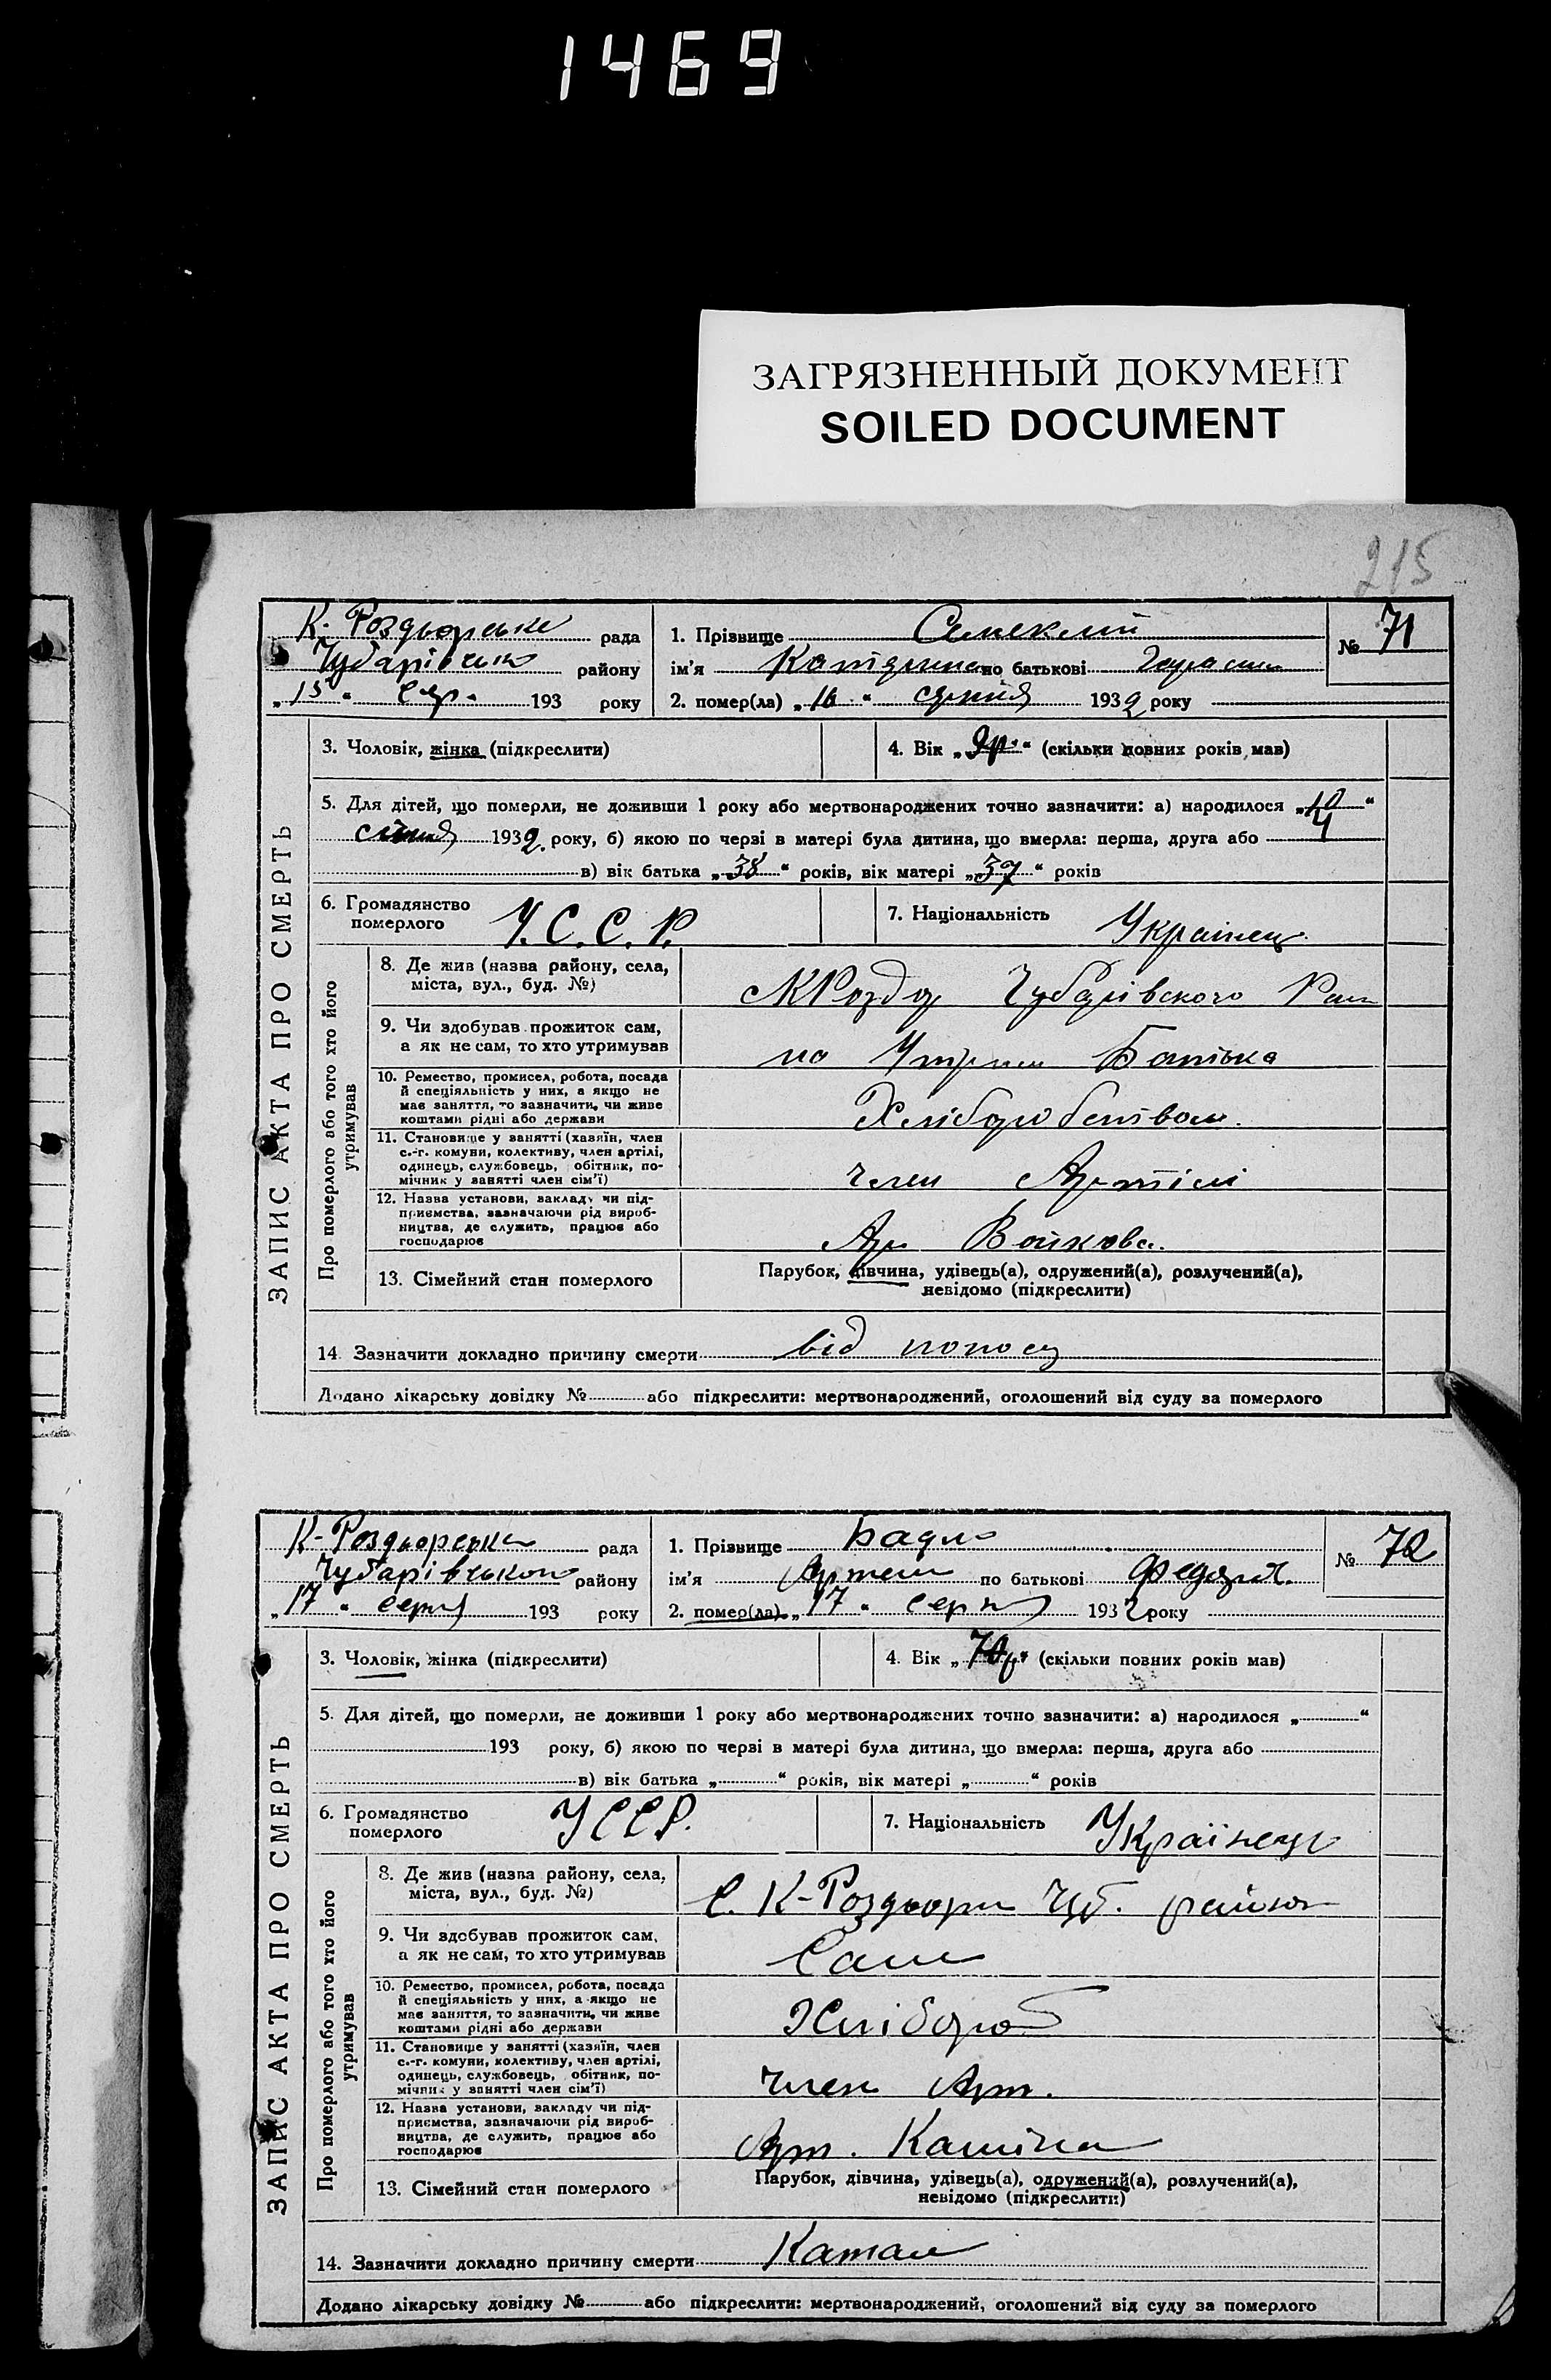 1469
ЗАГРЯЗНЕННЫЙ ДОКУМЕНТ
SOILED DOCUMENT
215
К. Роздьорське рада
1. Прізвище
№ 71
Чубарівськ району
ім'я по батькові
"15" Сер. 193 року
2. помер(ла) "16" серпня 1932 року
3. Чоловік, жінка (підкреслити)
4. Вік " " (скільки повних років мав)
5. Для дітей, що померли, не доживши 1 року або мертвонароджених точно зазначити: а) народилося " "
січня 1932 року, б) якою по черзі в матері була дитина, що вмерла: перша, друга або
в) вік батька "38" років, вік матері "37" років
6. Громадянство померлого У.С.С.Р.
7. Національність Українец
ЗАПИС АКТА ПРО СМЕРТЬ
Про померлого або того хто його утримував
8. Де жив (назва району, села,
міста, вул., буд. №)
Чубарівского
9. Чи здобував прожиток сам,
а як не сам, то хто утримував
на Утрим Батька
10. Ремество, промисел, робота, посада
й спеціяльність у них, а якщо не
має заняття, то зазначити, чи живе
коштами рідні або держави
11. Становище у занятті (хазяїн, член
с.-г. комуни, колективу, член артілі,
одинець, службовець, обітник, по-
мічник у занятті член сім'ї)
член Артілі
12. Назва установи, закладу чи під-
приємства, зазначаючи рід вироб-
ництва, де служить, працює або
господарює
Ар Войкова.
13. Сімейний стан померлого
Парубок, дівчина, удівець(а), одружений(а), розлучений(а),
невідомо (підкреслити)
14. Зазначити докладно причину смерти від поносу
Додано лікарську довідку № або підкреслити: мертвонароджений, оголошений від суду за померлого
К-Роздьорська рада
1. Прізвище Бадло
№ 72
Чубарівської району
ім'я Артем по батькові Федоров.
"17" серпня 193 року
2. помер(ла) "17" серпня 1932 року
3. Чоловік, жінка (підкреслити)
4. Вік "70р" (скільки повних років мав)
5. Для дітей, що померли, не доживши 1 року або мертвонароджених точно зазначити: а) народилося " "
193 року, б) якою по черзі в матері була дитина, що вмерла: перша, друга або
в) вік батька " " років, вік матері " " років
6. Громадянство померлого УССР.
7. Національність Українець
ЗАПИС АКТА ПРО СМЕРТЬ
Про померлого або того хто його утримував
8. Де жив (назва району, села,
міста, вул., буд. №)
С. К-Роздьори Чуб. району
9. Чи здобував прожиток сам,
а як не сам, то хто утримував
Сам
10. Ремество, промисел, робота, посада
й спеціяльність у них, а якщо не
має заняття, то зазначити, чи живе
коштами рідні або держави
Хлібороб
11. Становище у занятті (хазяїн, член
с.-г. комуни, колективу, член артілі,
одинець, службовець, обітник, по-
мічник у занятті член сім'ї)
Член Арт.
12. Назва установи, закладу чи під-
приємства, зазначаючи рід вироб-
ництва, де служить, працює або
господарює
Арт.
13. Сімейний стан померлого
Парубок, дівчина, удівець(а), одружений(а), розлучений(а),
невідомо (підкреслити)
14. Зазначити докладно причину смерти
Додано лікарську довідку № або підкреслити: мертвонароджений, оголошений від суду за померлого